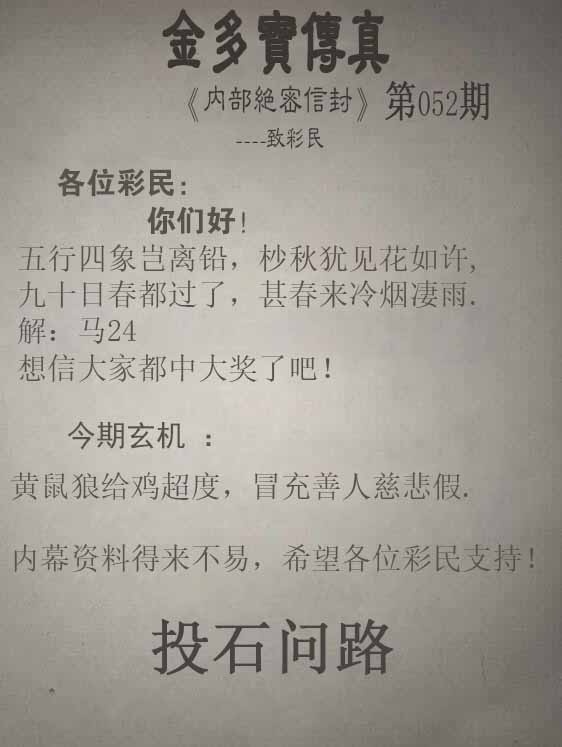 金多寶傳真
《内部絶密信封》第052期
----致彩民
各位彩民:
你们好!
五行四象岂离铅，杪秋犹见花如许,
九十日春都过了，甚春来冷烟凄雨.
解：马24
想信大家都中大奖了吧！
今期玄机 ：
黄鼠狼给鸡超度，冒充善人慈悲假.
内幕资料得来不易，希望各位彩民支持！
投石问路